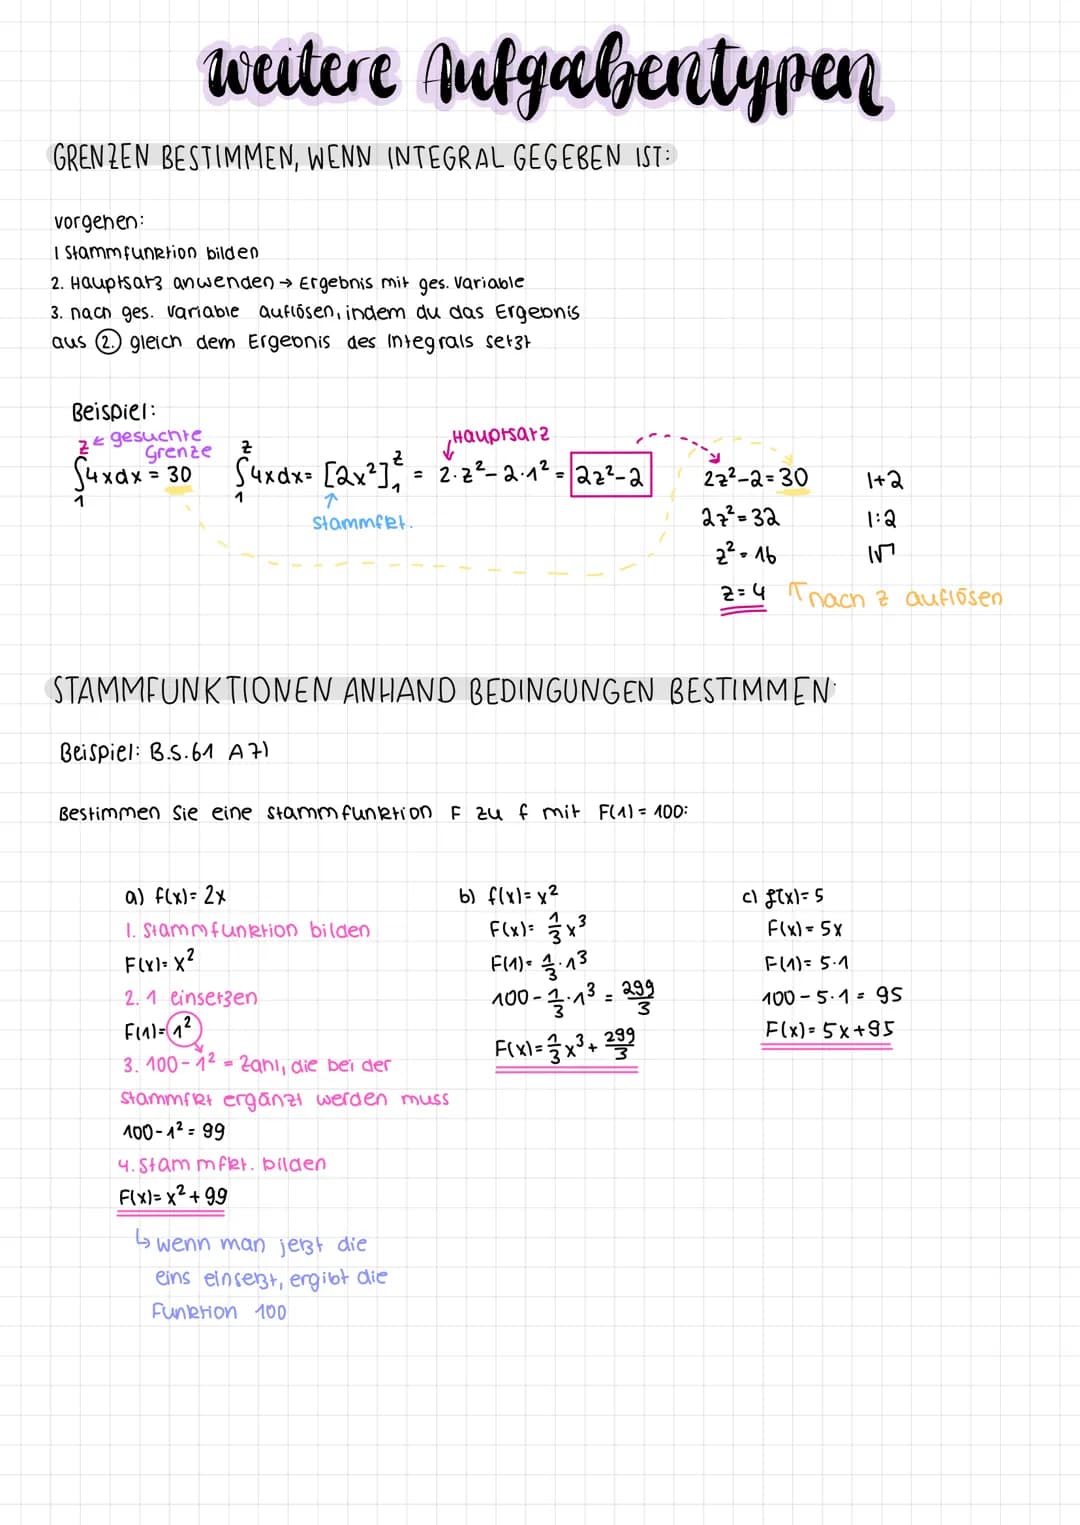 weitere Aufgabentypen
GRENZEN BESTIMMEN, WENN INTEGRAL GEGEBEN IST:
vorgehen:
1 Stammfunktion bilden
2. Hauptsatz anwenden → Ergebnis mit ges. Variable
3. nach ges. Variable auflösen, indem du das Ergebnis
aus ② gleich dem Ergebnis des Integrals setzt
Beispiel:
z ← gesuchte Grenze
∫₁ᶻ 4xdx = 30
∫₁ᶻ 4xdx = [2x²]₁ᶻ = 2·z² - 2·1² = 2z²-2
Hauptsatz
↑ Stammfkt.
2z²-2=30 |+2
2z²=32 |:2
z²=16 |√
z=4 ↑ nach z auflösen
STAMMFUNKTIONEN ANHAND BEDINGUNGEN BESTIMMEN:
Beispiel: B.S.61 A7)
Bestimmen Sie eine Stammfunktion F zu f mit F(1) = 100:
a) f(x)= 2x
1. Stammfunktion bilden
F(x)= x²
2. 1 einsetzen
F(1)= 1²
3. 100 - 1² = Zahl, die bei der
Stammfkt ergänzt werden muss
100-1² = 99
4. Stammfkt. bilden
F(x)= x² + 99
↳ wenn man jetzt die
eins einsetzt, ergibt die
Funktion 100
b) f(x)= x²
F(x)= 1/3 x³
F(1)= 1/3 · 1³
100 - 1/3 · 1³ = 299/3
F(x)= 1/3 x³ + 299/3
c) f(x)= 5
F(x) = 5x
F(1)= 5·1
100 - 5·1 = 95
F(x)= 5x+95